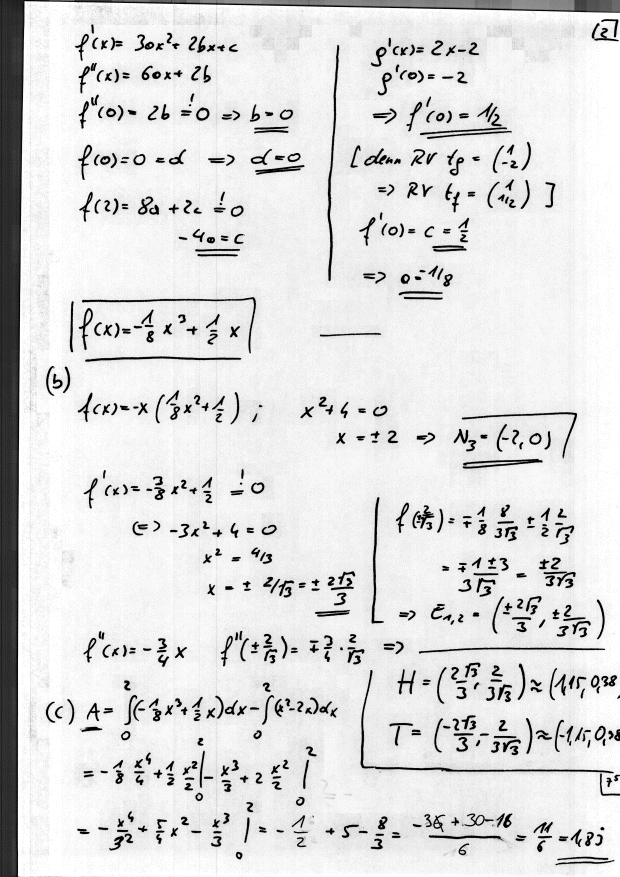 (2)
f'(x) = 3ax² + 2bx + c
f''(x) = 6ax + 2b
f''(0) = 2b =! 0 => b = 0
f(0) = 0 = d => d = 0
f(2) = 8a + 2c =! 0
-4a = c
g'(x) = 2x - 2
g'(0) = -2
=> f'(0) = 1/2
[denn RV tg = (1 -2)
=> RV tf = (1 1/2) ]
f'(0) = c = 1/2
=> a = -1/8
f(x) = -1/8 x³ + 1/2 x
(b)
f(x) = -x (1/8 x² + 1/2) ; x² + 4 = 0
x = ± 2 => N₃ = (-2, 0)
f'(x) = -3/8 x² + 1/2 =! 0
(=> -3x² + 4 = 0
x² = 4/3
x = ± 2/√3 = ± 2√3/3
f(±2/√3) = ∓ 1/8 8/3√3 ± 1/2 2/√3
= ∓1±3/3√3 = ±2/3√3
=> E₁,₂ = (±2√3/3, ±2/3√3)
f''(x) = -3/4 x f''(±2/√3) = ∓ 3/4 · 2/√3 =>
H = (2√3/3, 2/3√3) ≈ (1,15, 0,38)
T = (-2√3/3, -2/3√3) ≈ (-1,15, 0,38
(c) A = ∫₀² (-1/8 x³ + 1/2 x) dx - ∫₀² (x² - 2x) dx
= -1/8 x⁴/4 + 1/2 x²/2 |₀² - x³/3 + 2 x²/2 |₀²
= -x⁴/32 + 5/4 x² - x³/3 |₀² = -1/2 + 5 - 8/3 = -3 + 30 - 16/6 = 11/6 = 1,83